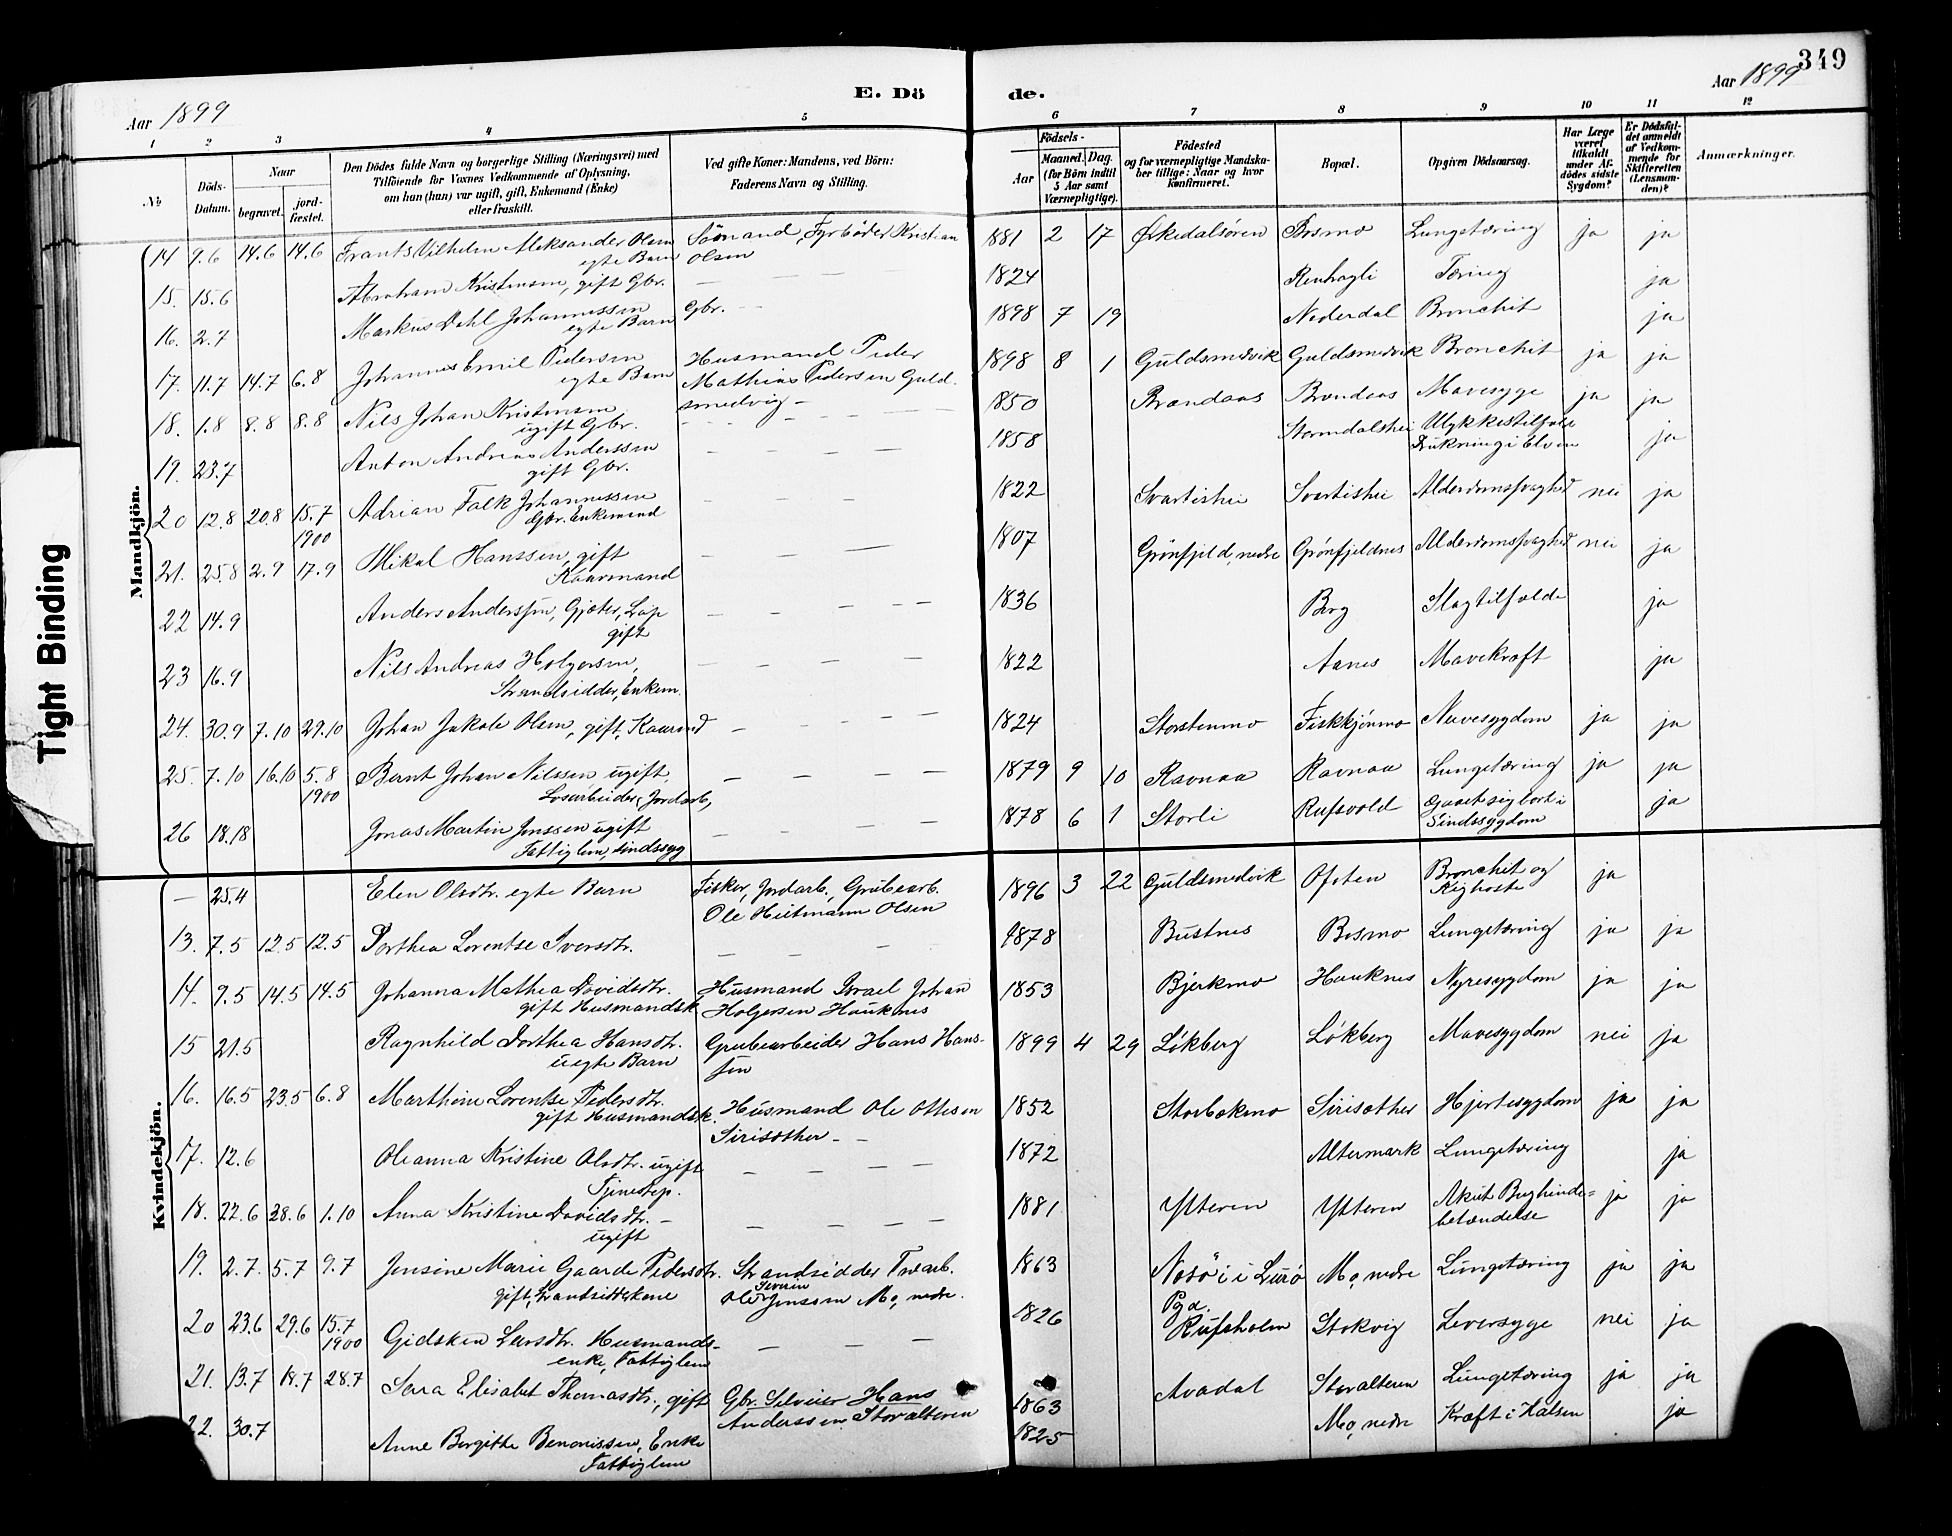 349
Aar 1899
E. Dö
de.
Aar 1899
1 2 3 4 5 6 7 8 9 10 11 12
№
Döds-Datum.
Naar
begravet.
jord-fæstet.
Den Dödes fulde Navn og borgerlige Stilling (Næringsvei) med
Tilföiende for Voxnes Vedkommende af Oplysning,
om han (hun) var ugift, gift, Enkemand (Enke)
eller fraskilt.
Ved gifte Koner: Mandens, ved Börn:
Faderens Navn og Stilling.
Födsels-
Aar
Maaned. Dag.
(for Börn indtil
5 Aar samt
Værnepligtige).
Födested
og for værnepligtige Mandska-
ber tillige: Naar og hvor
konfirmeret.
Bopæl.
Opgiven Dödsaarsag.
Har Læge
været
tilkaldt
under Af-
dödes sidste
Sygdom?
Er Dödsfal-
det anmeldt
af Vedkom-
mende for
Skifteretten
(Lensman-
den)?
Anmærkninger.
Tight Binding
Mandkjön.
14 9.6 14.6 14.6 Frants Vilhelm Aleksander Olsen egte Barn Sömand, Fyrböder Kristian Olsen 1881 2 17 Örkedalsören Bosmo Lungetæring ja ja
15. 15.6 Abraham Kristensen, gift Gbr. — 1824 Renhagli Tæring ja
16. 2.7 Markus Dahl Johannessen egte Barn Gbr. 1898 7 19 Nederdal Bronchit ja
17. 11.7 14.7 6.8 Johannes Emil Pedersen egte Barn Husmand Peder Mathias Pedersen Guldsmedvig 1898 8 1 Guldsmedvik Guldsmedvik Bronchit ja ja
18. 1.8 8.8 8.8 Nils Johan Kristensen ugift Gbr. — 1850 Brandaas Brandaas Mavesyge ja ja
19. 23.7 Anton Andreas Anderssen gift Gbr. — 1858 Stormdalshei Ulykkestilfælde Drukning i Elven ja
20 12.8 20.8 15.7 1900 Adrian Falk Johannessen Gbr. Enkemand — 1822 Svartishei Svartishei Alderdomssvaghed nei ja
21. 25.8 2.9 17.9 Mikal Hanssen, gift Kaarmand — 1807 Grönfjeld, nedre Grönfjeldnes Alderdomssvaghed nei ja
22 14.9 Anders Anderssen, Gjæter, Lap gift — 1836 Berg Slagtilfælde ja
23 16.9 Nils Andreas Holgersen, Strandsidder, Enkem. — 1822 Aanes Mavekræft ja
24. 30.9 7.10 29.10 Johan Jakob Olsen, gift, Kaarmd — 1824 Storstenmo Fiskkjönmo Navesygdom ja ja
25. 7.10 16.10 5.8 1900 Bernt Johan Nilssen ugift. Losarbeider, Jordarb, — 1879 9 10 Ravnaa Ravnaa Lungetæring ja ja
26 18.18 Jonas Martin Jenssen ugift Fattiglem, sindssyg — 1878 6 1 Storli Rufsvold Gaaet sig bort i Sindssygdom ja
Kvindekjön.
— 25.4 Elen Olsdtr. egte Barn Fisker, Jordarb., Grubearb. Ole Hutmann Olsen 1896 3 22 Guldsmedvik Ofoten Bronchit og Kighoste ja
13. 7.5 12.5 12.5 Dorthea Lorentse Iversdtr. — 1878 Bustnes Bosmo Lungetæring ja ja
14. 9.5 14.5 14.5 Johanna Mathea Davidsdtr. gift Husmandsk. Husmand Israel Johan Holgersen Hauknes 1853 Bjerkmo Hauknes Nyresygdom ja ja
15 21.5 Ragnhild Dorthea Hansdtr. uegte Barn Grubearbeider Hans Hanssen 1899 4 29 Lökberg Lökberg Mavesygdom nei ja
16. 16.5 23.5 6.8 Marthine Lorentse Pedersdtr. gift Husmandsk. Husmand Ole Ottesen Sirisæther 1852 Storbækmo Sirisæther Hjertesygdom ja ja
17. 12.6 Oleanna Kristine Olsdtr. ugift Tjenestep. — 1872 Altermark Lungetæring ja
18. 22.6 28.6 1.10 Anna Kristine Davidsdtr. — ugift — 1881 Ytteren Ytteren Akut Bughindebetændelse ja ja
19. 2.7. 5.7 9.7 Jensine Marie Gaarde Pedersdtr. gift, Strandsidderkone Strandsidder Træarb. Ole Severin Jenssen Mo, nedre. 1863 Nesö i Lurö Pgd. Mo, nedre Lungetæring ja ja
20 23.6 29.6 15.7 1900 Gidsken Larsdtr. Husmandsenke, Fattiglem — 1826 Rufsholm Stokvig Leversyge nei ja
21. 13.7 18.7 28.7 Sara Elisabet Thomasdtr., gift Gbr. Selveier Hans Anderssen Storalteren 1863 Avadal Storalteren Lungetæring ja ja
22. 30.7 Anne Bergitte Benonissen, Enke Fattiglem 1825 Mo, nedre Kræft i Halsen ja